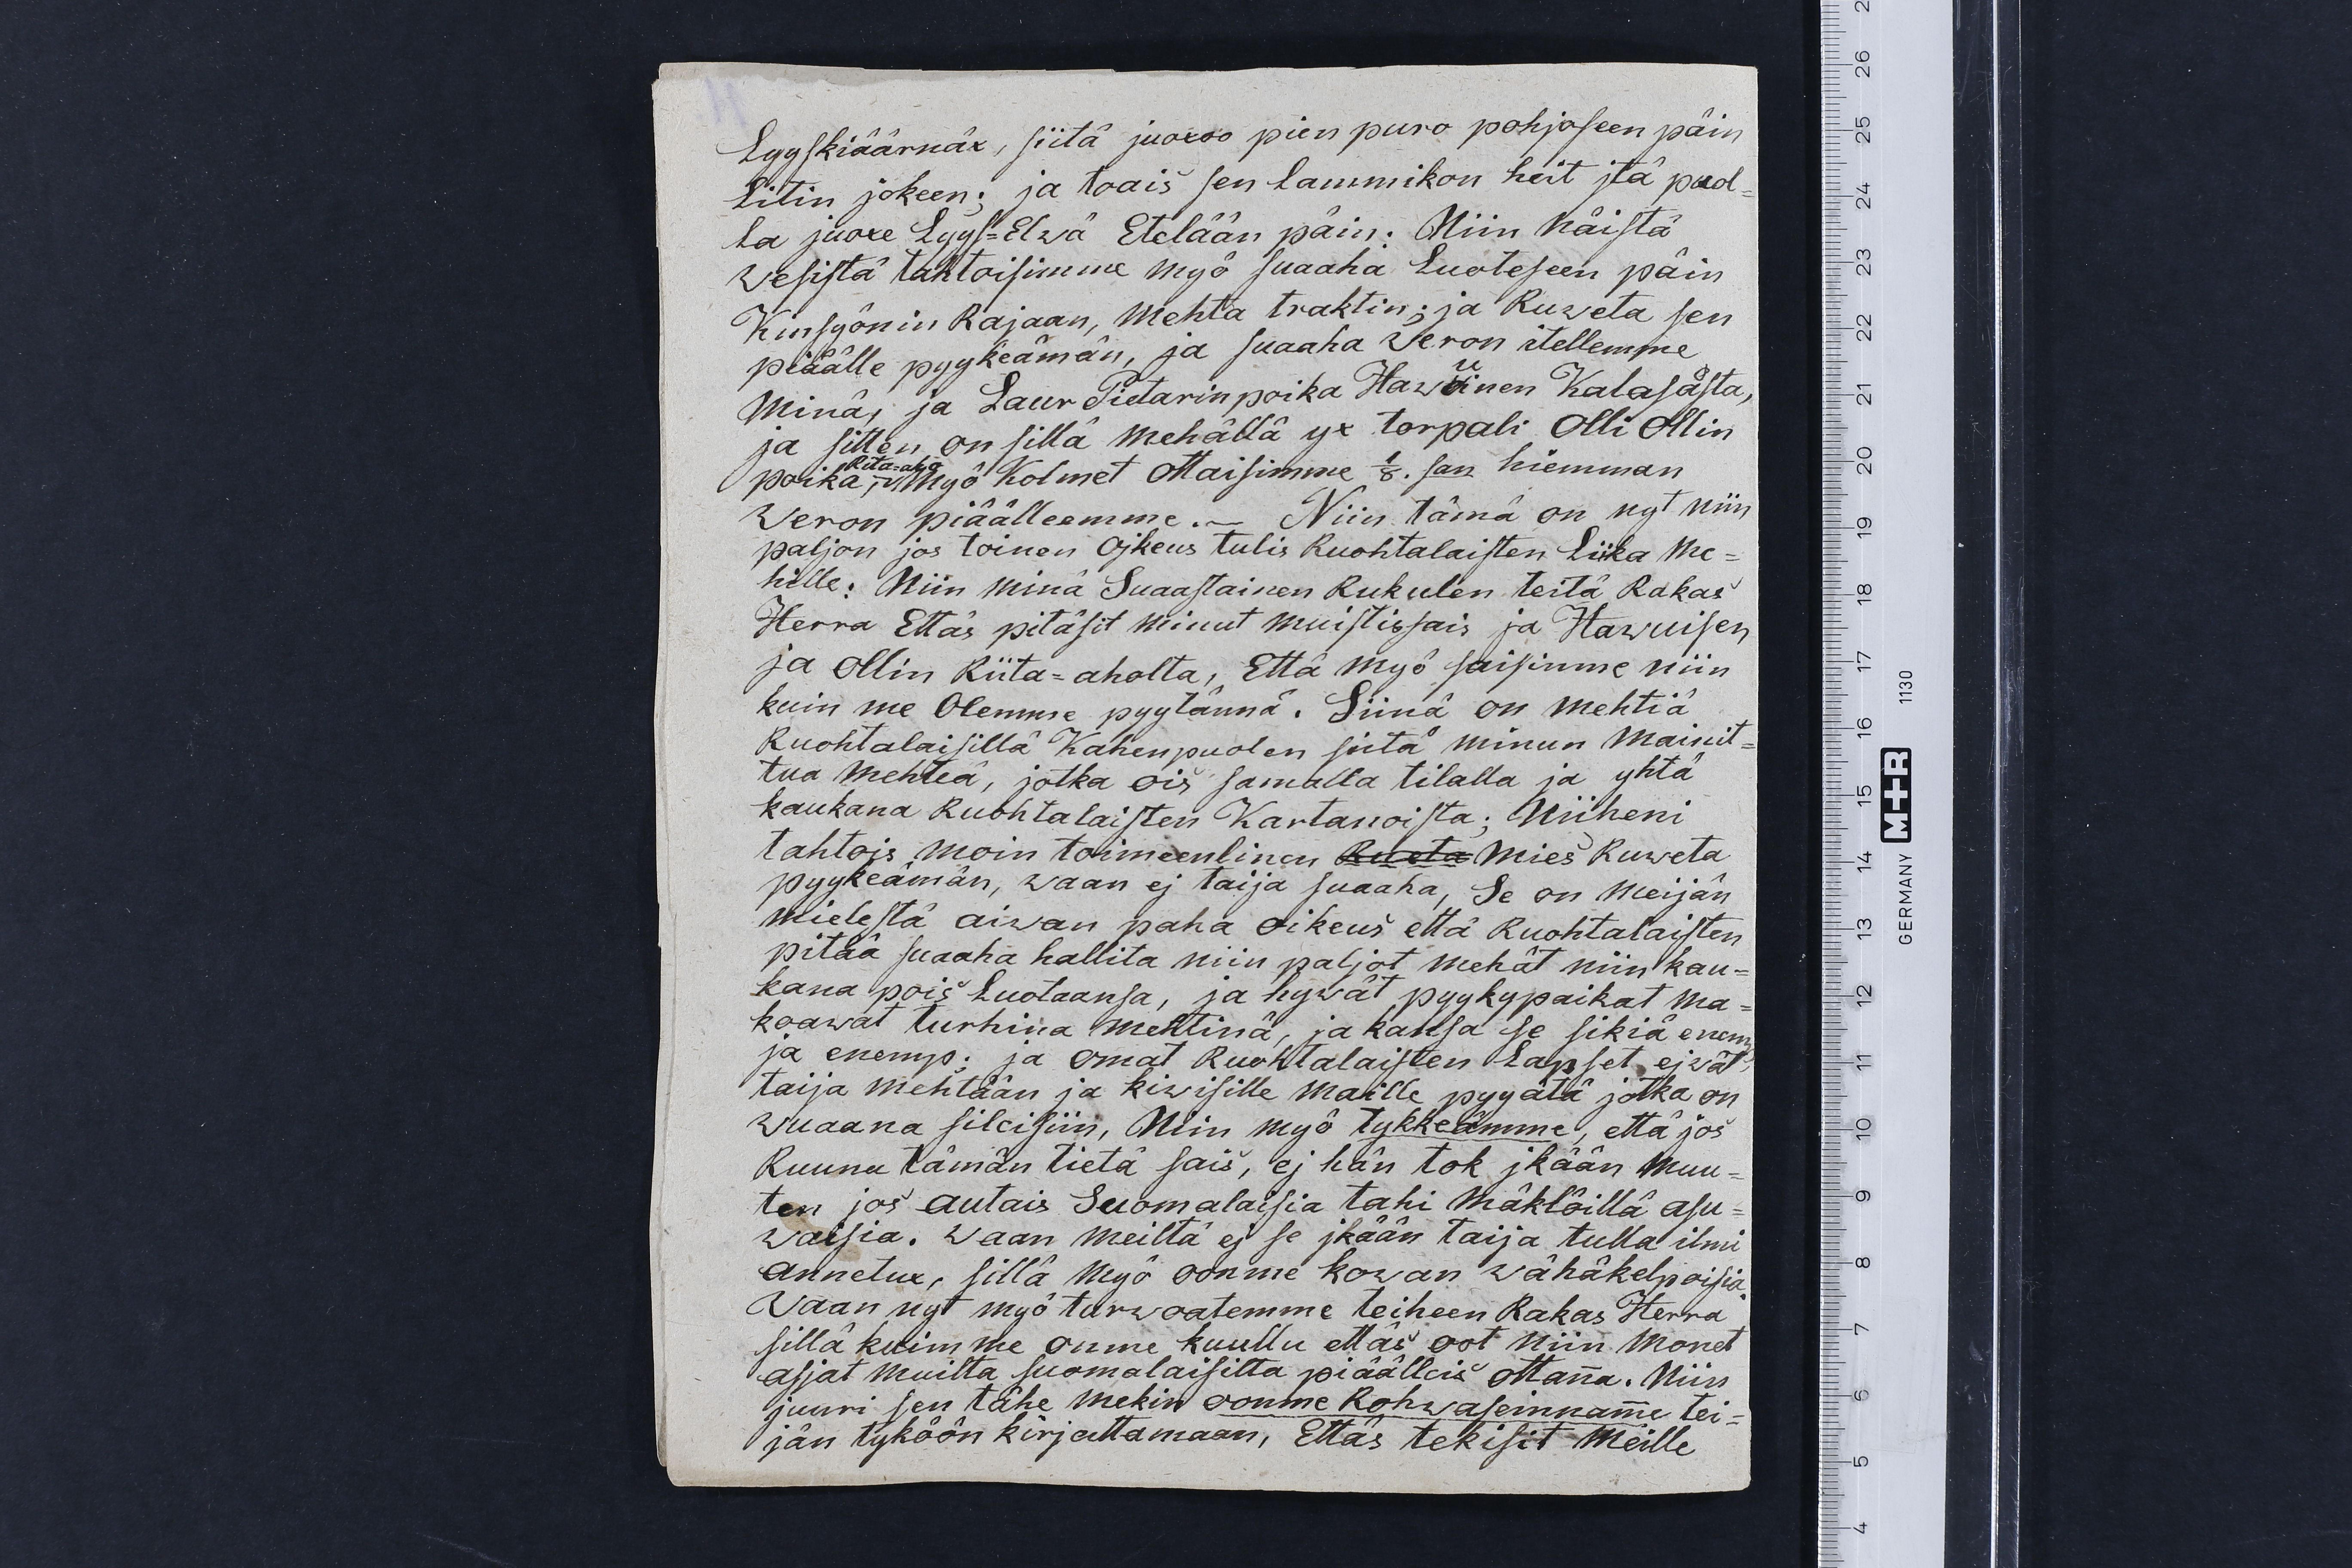 Lyyskiäärnäx, siitä juoxoo pien puro pohjoseen päin
Litin jokeen; ja toaiš sen lammikon heit jtä puol=
la juoxe Lyys=Elwä Etelään päin: Niin Näistä
wesistä tahtoisimme myö suaaha Luoteseen päin
Kinsyönin Rajaan, Mehta traktin; ja Ruweta sen
piäälle pyykeämän, ja suaaha Veron itellemme
Minä, ja Laur Pietarinpoika Hawuinen Kalasåsta,
ja sitten on sillä Mehällä yx torpali Olli Ollin
poika, Rita=aho Myö Kolmet Ottaisimme 1/8. san hiemman
Veron piäälleemme. — Niin tämä on nyt niin
paljon jos toinen Ojkeus tulis Ruohtalaisten Liika Me=
hille: Niin Minä Suaastainen Rukulen teitä Rakas
Herra Ettäs pitäsit Minut Muistissais ja Hawuisen
ja Ollin Riita=aholta, Että Myö saisimme niin
kuin me Olemme pyytännä. Siinä on Mehtiä
Ruohtalaisillä Kahenpuolen siitä minun Mainit=
tua Mehteä, jotka oiš samalla tilalla ja yhtä
kaukana Ruohtalaisten Kartanoista; Niiheni
tahtois moin toimeenlinen Rueta Mieš Ruweta
pyykeämän, waan ej taija suaaha, Se on Meijän
Mielestä aiwan paha oikeuš että Ruohtalaisten
pitää suaaha hallita niin paljot Mehät niin kau=
kana poiš Luotaansa, ja hywät pyykypaikat Ma=
koawat turhina Mehtinä, ja kansa se sikiä enemp
ja enemp: ja omat Ruohtalaisten Lapset ejwät
taija Mehtään ja kiwisille Maille pyyätä jotka on
wuaana silcisiin, Niin myö tykkeämme, että jos
Ruunu tämän tietä saiš, ej hän tok jkään Muu=
ten još autais Suomalaisia tahi Mäklöillä asu=
waisia. Waan Meiltä ej se jkään taija tulla ilmi
annetux, sillä Myö oonme kowan wähäkelpoisia.
Vaan nyt myö turwoatemme teiheen Rakas Herra
sillä kuimme onme kuullu ettäš oot Niin Monet
asjat Muilta suomalaisilta piäälleiš ottan̄a. Niin
juuri sen tähe Mekin oonme Rohwaseinnam̄e tei=
jän tyköön kirjuttamaan, Ettäs tekisit Meille